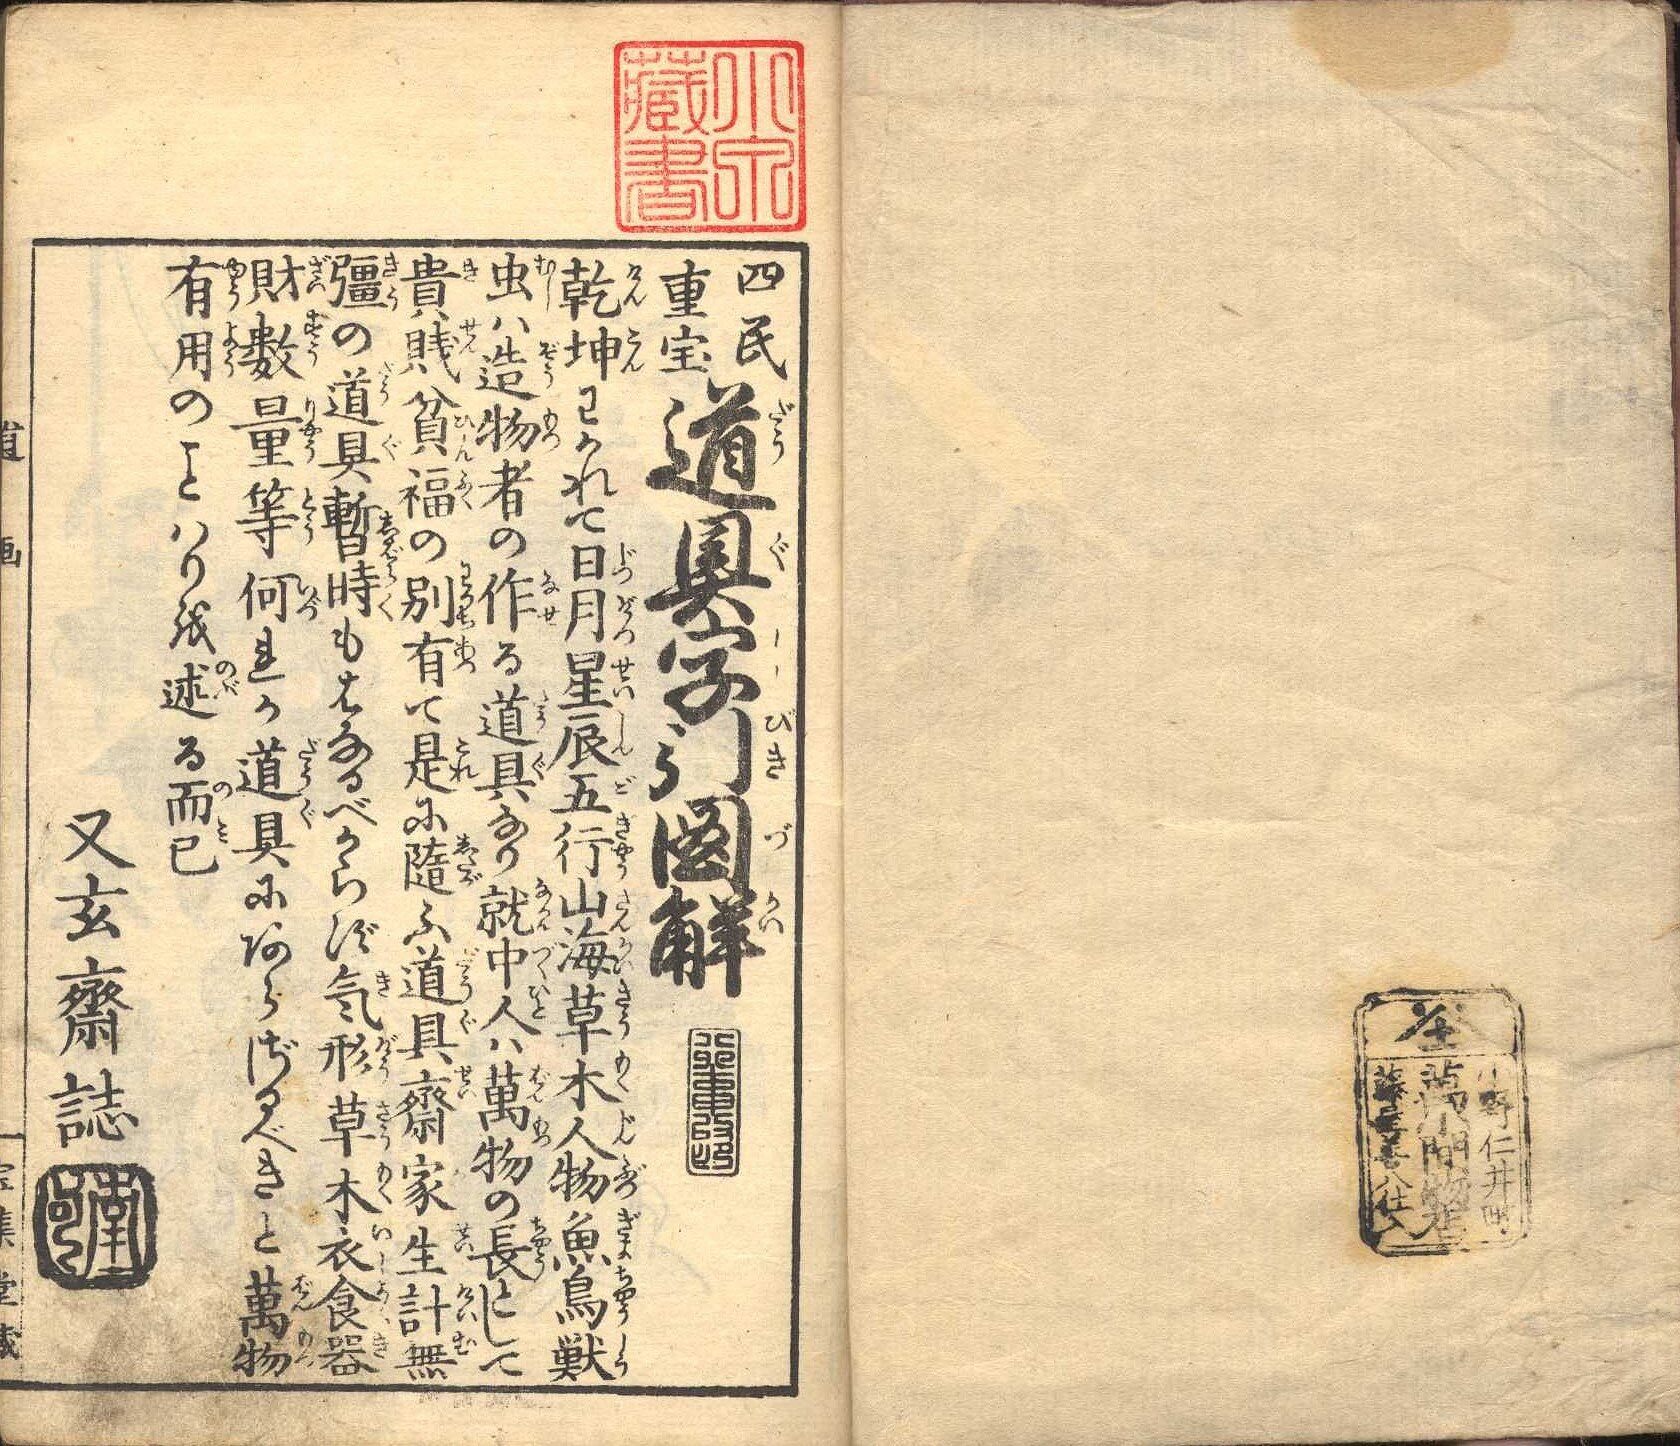 小野仁井町
萬小間物店
藤屋喜八仕入
小泉
藏書
四民
重宝
道具字引図解
だうぐじびきづかい
乾坤わかれて日月星辰五行山海草木人物魚鳥獣
虫ハ造物者の作る道具なり就中人ハ萬物の長として
貴賎貧福の別有て是に随ふ道具齋家生計無
彊の道具暫時もはなるべからず気形草木衣食器
財数量等何れか道具にあらざるべきと萬物
有用のことハりを述る而已
又玄齋誌